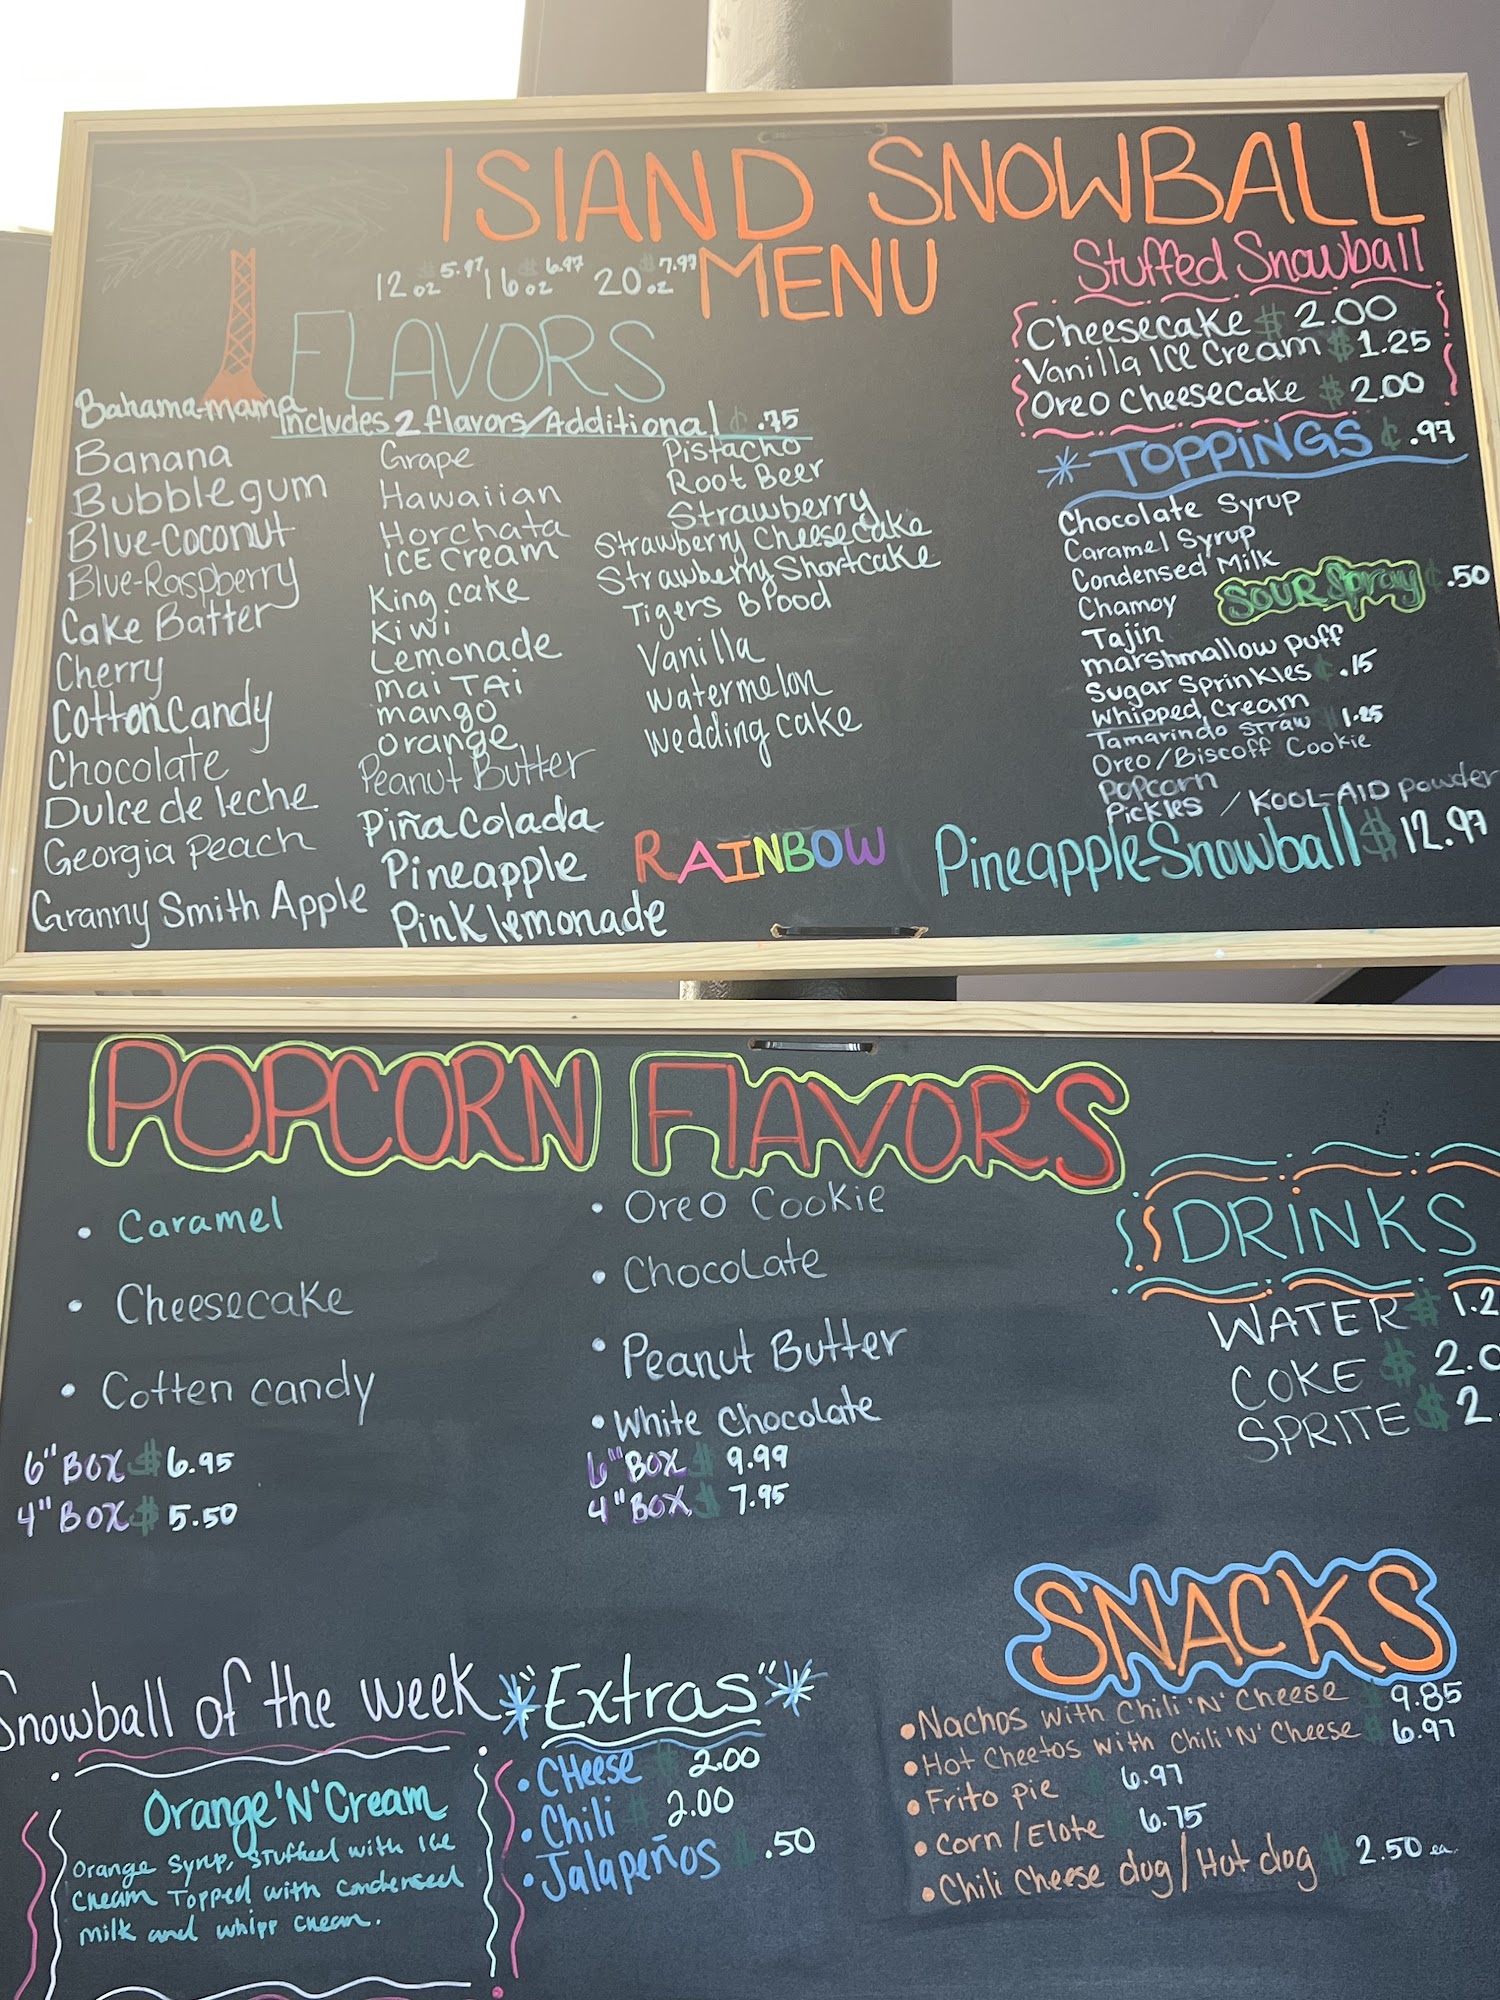 ISLAND SNOWBALL
MENU
12oz $5.97 16oz $6.97 20oz $7.97
FLAVORS
Includes 2 flavors/Additional ¢ .75
Bahama-mama
Banana
Bubblegum
Blue-Coconut
Blue-Raspberry
Cake Batter
Cherry
Cotton Candy
Chocolate
Dulce de leche
Georgia Peach
Granny Smith Apple
Grape
Hawaiian
Horchata
ICE Cream
King cake
Kiwi
Lemonade
mai TAi
mango
orange
Peanut Butter
Piña Colada
Pineapple
Pink lemonade
Pistacho
Root Beer
Strawberry
Strawberry Cheesecake
Strawberry Shortcake
Tigers Blood
Vanilla
Watermelon
Wedding cake
RAINBOW
Stuffed Snowball
Cheesecake $ 2.00
Vanilla Ice Cream $ 1.25
Oreo Cheesecake $ 2.00
*TOPPINGS ¢ .97
Chocolate Syrup
Caramel Syrup
Condensed Milk
Chamoy
SOUR Spray ¢ .50
Tajin
marshmallow puff
Sugar Sprinkles ¢ .15
Whipped Cream
Tamarindo Straw $ 1.25
Oreo/Biscoff Cookie
Popcorn
Pickles / KOOL-AID powder
Pineapple-Snowball $ 12.97
POPCORN FLAVORS
• Caramel
• Cheesecake
• Cotten candy
6" BOX $ 6.95
4" BOX $ 5.50
• Oreo Cookie
• Chocolate
• Peanut Butter
• White Chocolate
6" BOX $ 9.99
4" BOX $ 7.95
DRINKS
WATER $ 1.2
COKE $ 2.0
SPRITE $ 2
SNACKS
• Nachos with Chili 'N' Cheese $ 9.85
• Hot Cheetos with Chili 'N' Cheese $ 6.97
• Frito pie $ 6.97
• Corn/Elote $ 6.75
• Chili Cheese dog/Hot dog $ 2.50 ea.
Snowball of the week
Orange 'N' Cream
Orange Syrup, Stuffed with Ice
Cream Topped with condensed
Milk and whipp Cream.
*"Extras"*
• Cheese $ 2.00
• Chili $ 2.00
• Jalapeños $ .50